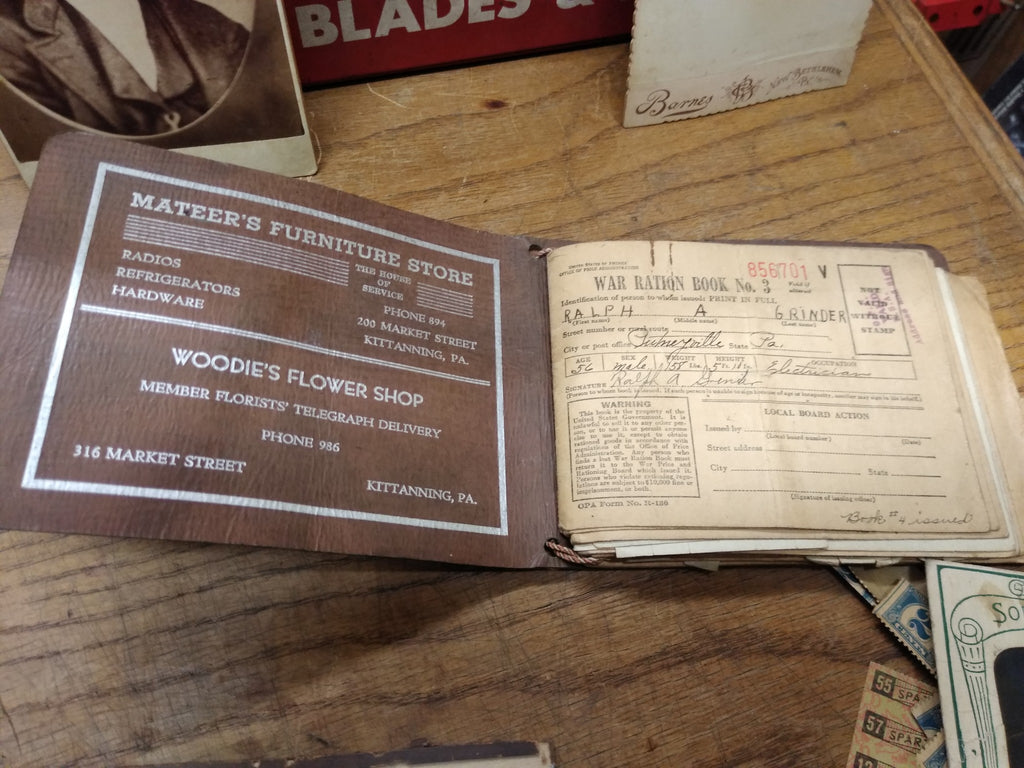 BLADES &
Barnes
New Bethlehem,
Pa.
MATEER'S FURNITURE STORE
RADIOS
REFRIGERATORS
HARDWARE
THE HOUSE
OF
SERVICE
PHONE 894
200 MARKET STREET
KITTANNING, PA.
WOODIE'S FLOWER SHOP
MEMBER FLORISTS' TELEGRAPH DELIVERY
PHONE 986
316 MARKET STREET
KITTANNING, PA.
United States of America
OFFICE OF PRICE ADMINISTRATION
856701 V
Void if
altered
WAR RATION BOOK No. 3
NOT
VALID
WITHOUT
STAMP
Identification of person to whom issued: PRINT IN FULL
RALPH A GRINDER
(First name) (Middle name) (Last name)
Street number or rural route
City or post office Turnerville State Pa.
AGE SEX WEIGHT HEIGHT OCCUPATION
56 male 158 Lbs. 5 Ft. In. Electrician
SIGNATURE Ralph A
(Person to whom book is issued. If such person is unable to sign because of age or incapacity, another may sign in his behalf.)
WARNING
This book is the property of the
United States Government. It is
unlawful to sell it to any other per-
son, or to use it or permit anyone
else to use it, except to obtain
rationed goods in accordance with
regulations of the Office of Price
Administration. Any person who
finds a lost War Ration Book must
return it to the War Price and
Rationing Board which issued it.
Persons who violate rationing regu-
lations are subject to $10,000 fine or
imprisonment, or both.
LOCAL BOARD ACTION
Issued by
(Local board number) (Date)
Street address
City State
(Signature of issuing officer)
OPA Form No. R-130
Book #4 issued
2
So
55 SPA
57 SPAR